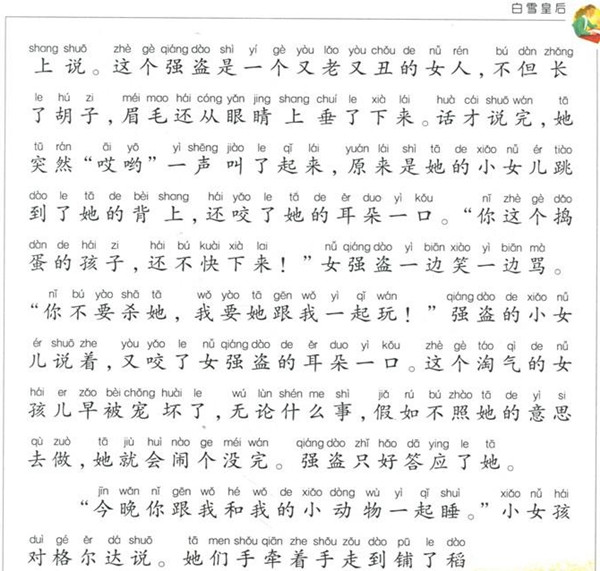 白雪皇后
shang shuō zhè gè qiáng dào shì yí gè yòu lǎo yòu chǒu de nǚ rén bú dàn zhǎng
上说。这个强盗是一个又老又丑的女人，不但长
le hú zi méi mao hái cóng yǎn jing shang chuí le xià lái huà cái shuō wán tā
了胡子，眉毛还从眼睛上垂了下来。话才说完，她
tū rán āi yō yì shēng jiào le qǐ lái yuán lái shì tā de xiǎo nǚ ér tiào
突然“哎哟”一声叫了起来，原来是她的小女儿跳
dào le tā de bèi shang hái yǎo le tā de ěr duo yì kǒu nǐ zhè gè dǎo
到了她的背上，还咬了她的耳朵一口。“你这个捣
dàn de hái zi hái bú kuài xià lai nǚ qiáng dào yì biān xiào yì biān mà
蛋的孩子，还不快下来！”女强盗一边笑一边骂。
nǐ bú yào shā tā wǒ yào tā gēn wǒ yì qǐ wán qiáng dào de xiǎo nǚ
“你不要杀她，我要她跟我一起玩！”强盗的小女
ér shuō zhe yòu yǎo le nǚ qiáng dào de ěr duo yì kǒu zhè gè táo qì de nǚ
儿说着，又咬了女强盗的耳朵一口。这个淘气的女
hái er zǎo bèi chǒng huài le wú lùn shén me shì jiǎ rú bú zhào tā de yì si
孩儿早被宠坏了，无论什么事，假如不照她的意思
qù zuò tā jiù huì nào ge méi wán qiáng dào zhǐ hǎo dā ying le tā
去做，她就会闹个没完。强盗只好答应了她。
jīn wǎn nǐ gēn wǒ hé wǒ de xiǎo dòng wù yì qǐ shuì xiǎo nǚ hái
“今晚你跟我和我的小动物一起睡。”小女孩
duì gé ěr dá shuō tā men shǒu qiān zhe shǒu zǒu dào pū le dào
对格尔达说。她们手牵着手走到铺了稻